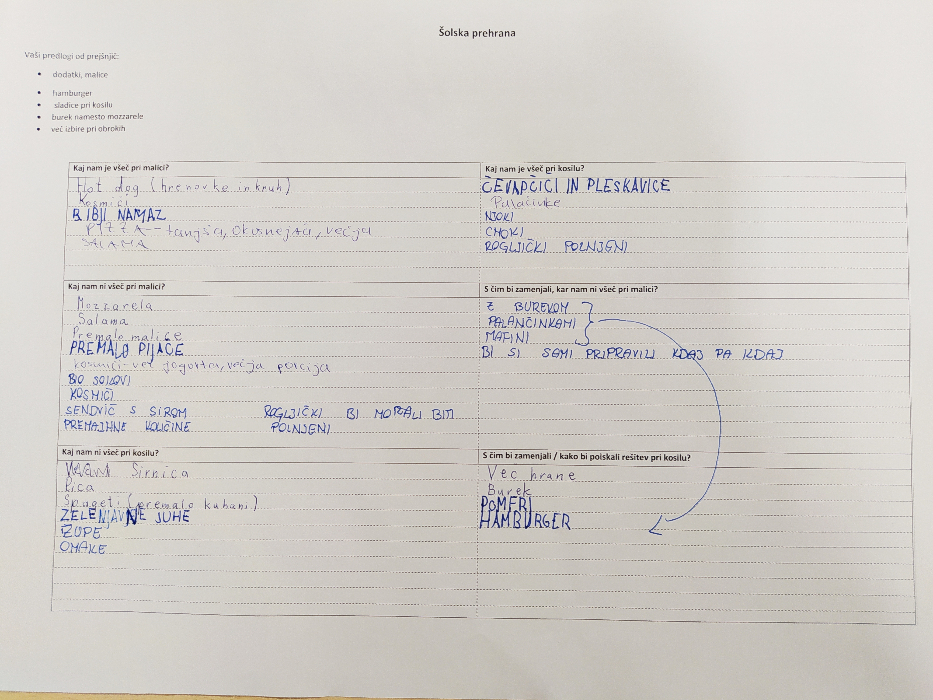 Šolska prehrana
Vaši predlogi od prejšnjič:
• dodatki, malice
• hamburger
• sladice pri kosilu
• burek namesto mozzarele
• več izbire pri obrokih
Kaj nam je všeč pri malici?
Hot dog (hrenovke in kruh)
Kosmiči
RIBJI NAMAZ
PIZZA - tanjša, okusnejša, večja
SALAMA
Kaj nam je všeč pri kosilu?
ČEVAPČIČI IN PLESKAVICE
Palačinke
NJOKI
CMOKI
ROGLJIČKI POLNJENI
Kaj nam ni všeč pri malici?
Mozzarela
Salama
Premalo malice
PREMALO PIJAČE
kosmiči - več jogurtov, večja porcija
BIO SOKOVI
KOSMIČI
SENDVIČ S SIROM ROGLJIČKI BI MORALI BITI
PREMAJHNE KOLIČINE POLNJENI
S čim bi zamenjali, kar nam ni všeč pri malici?
Z BUREKOM
PALANČINKAMI
MAFINI
BI SI SAMI PRIPRAVILI KDAJ PA KDAJ
Kaj nam ni všeč pri kosilu?
Sirnica
Rica
Spageti (premalo kuhani)
ZELENJAVNE JUHE
ŽUPE
OMAKE
S čim bi zamenjali / kako bi poiskali rešitev pri kosilu?
Vec hrane
Burek
POMFRI
HAMBURGER